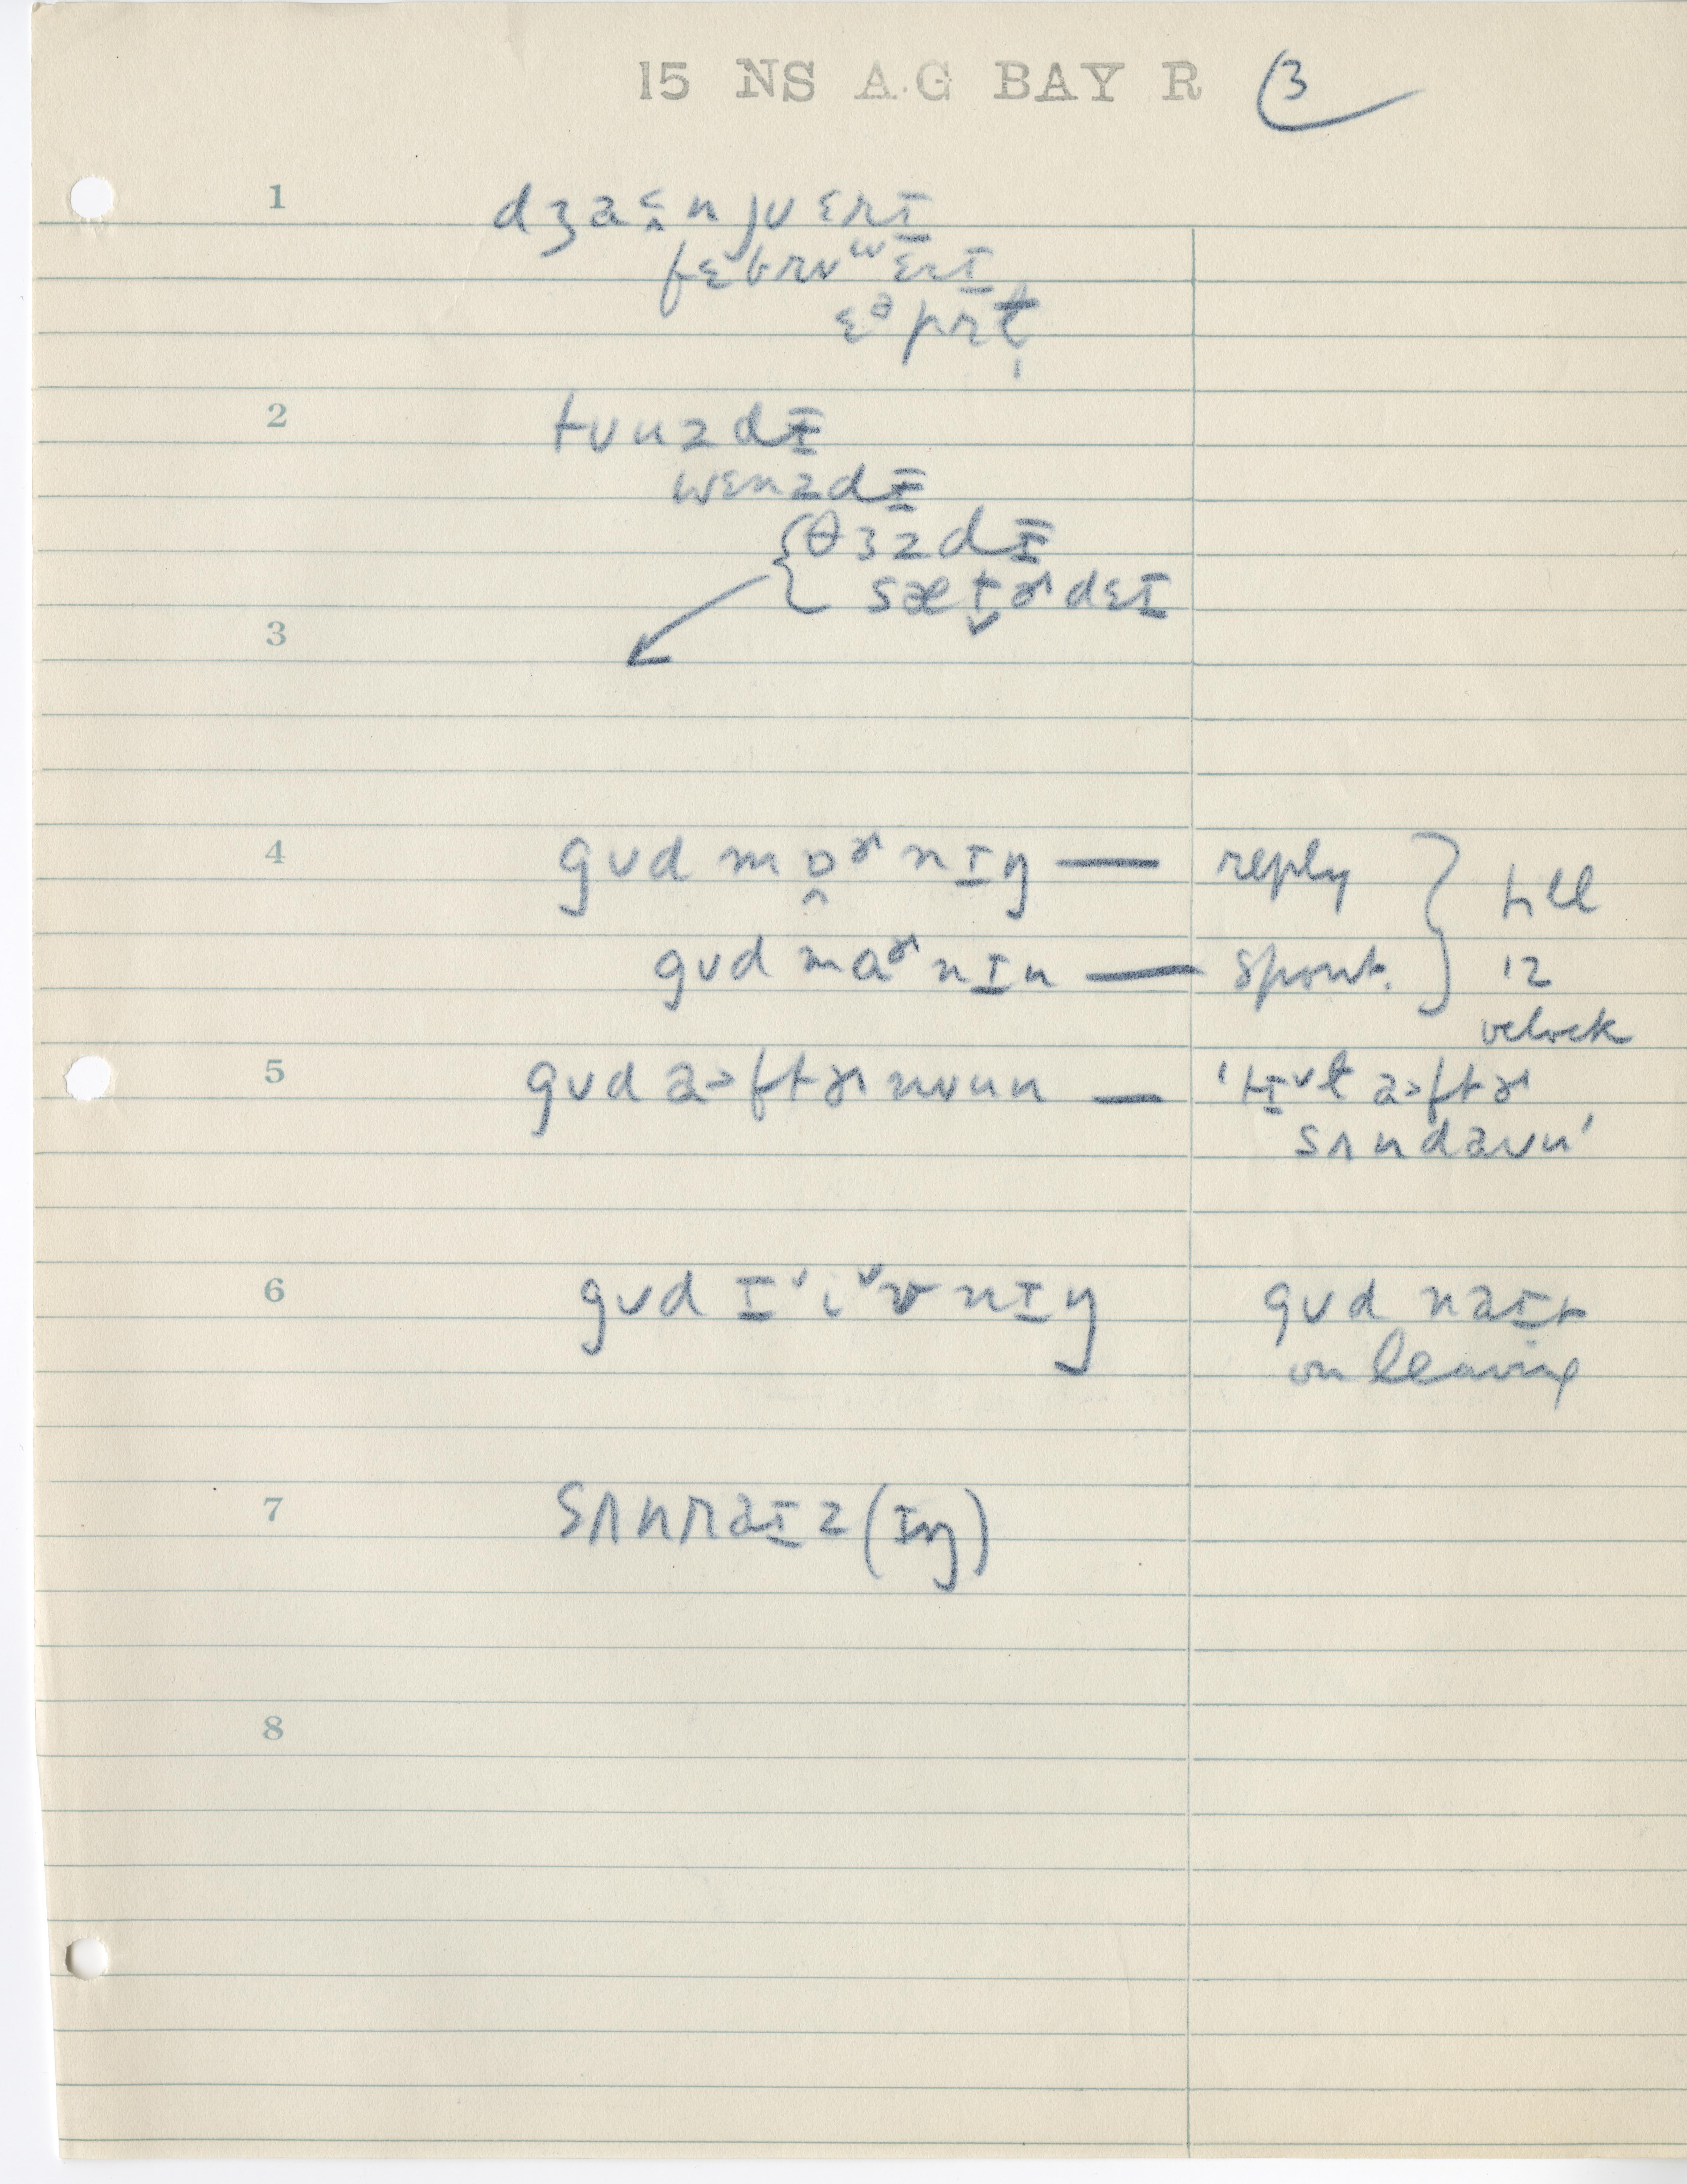 15 NS A.G BAY R 3
1 dʒaɛ̭njʊɛrɪ
fɛˇbrʊʷɛrɪ
ɛᵊprɫ̩
2 tʊuzdɪ
wɛnzdɪ
{θɜzdɪ
sæt̬ɚdɛɪ
3
4 gʊd mɒ̭ɚnɪŋ — reply } till
gʊd mɑɚnɪn — spont. } 12
oclock
5 gʊd a>ftɚnʊun — 'tɪᵛɫ a>ftɚ
sʌndaʊn'
6 gʊd ɪˇiˇvnɪŋ gʊd naɪt
on leaving
7 sʌnraɪz(ɪŋ)
8